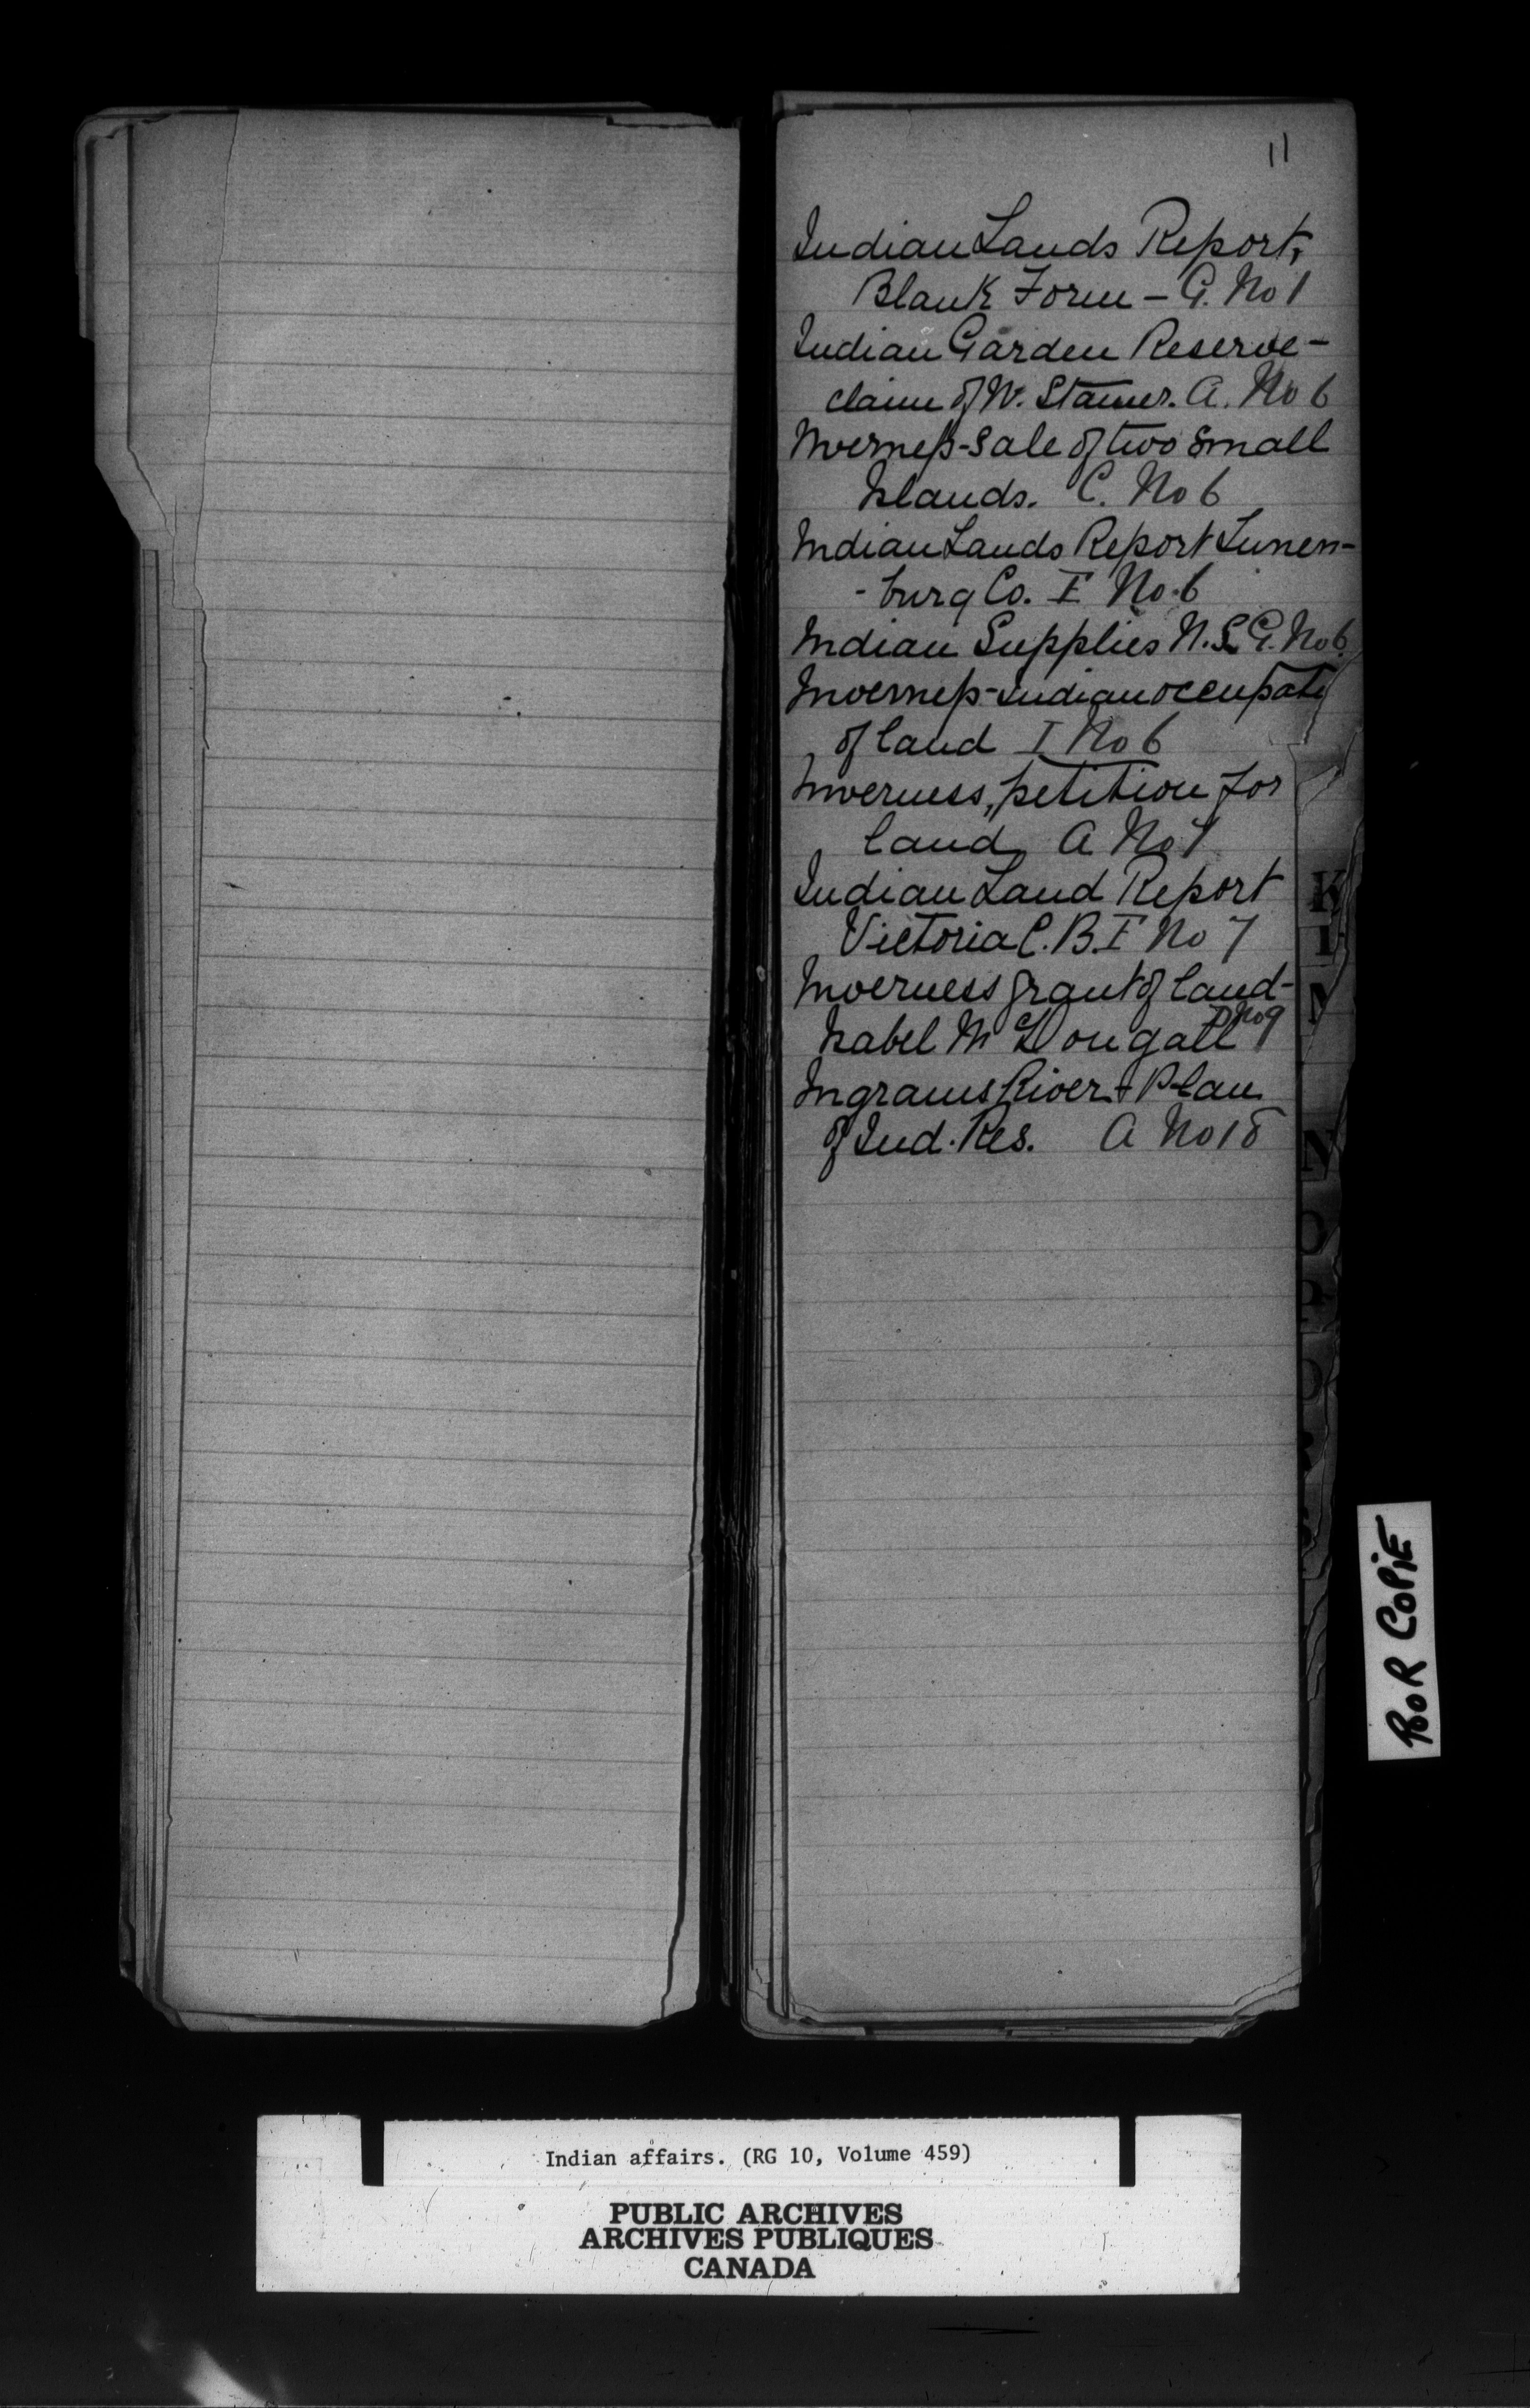 11
Indian Lands Report,
Blank Form - G. No 1
Indian Garden Reserve -
claim of W. Stamer. A. No 6
Inverness - Sale of two small
Islands. C. No 6
Indian Lands Report Lunen-
- burg Co. F No. 6
Indian Supplies N.S. G. No 6.
Inverness - Indian occupat
of land I No 6
Inverness, petition for
land, A No 7
Indian Land Report
Victoria C.B. F No 7
Inverness grant of land -
Isabel McDougall D No 9
Ingrams River - Plan
of Ind. Res. A No 18
K
L
M
N
O
P
POOR COPIE
Indian affairs. (RG 10, Volume 459)
PUBLIC ARCHIVES
ARCHIVES PUBLIQUES
CANADA